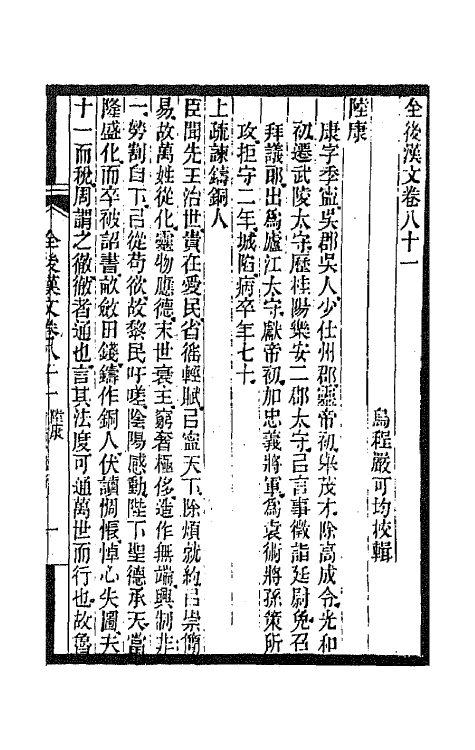 全後漢文卷八十一
烏程嚴可均校輯
陸康
康字季寍吳郡吳人少仕州郡靈帝初舉茂才除高成令光和
初遷武陵太守歷桂陽樂安二郡太守㠯言事徵詣廷尉免召
拜議郎出爲廬江太守獻帝初加忠義將軍爲袁術將孫策所
攻拒守二年城陷病卒年七十
上疏諫鑄銅人
臣聞先王治世貴在愛民省徭輕賦㠯寍天下除煩就約㠯崇簡
易故萬姓從化靈物應德末世衰主窮奢極侈造作無端興制非
一勞割自下㠯從苟欲故黎民吁嗟陰陽感動陛下聖德承天當
隆盛化而卒被詔書畝斂田錢鑄作銅人伏讀惆悵悼心失圖夫
十一而稅周謂之徹徹者通也言其法度可通萬世而行也故魯
全後漢文卷八十一
陸康
一